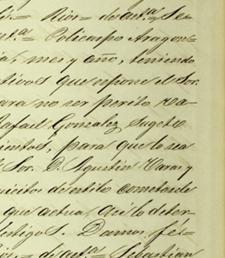 Rios = de aut.ª = Se-
nt.ª = Policarpo Aragon =
mes y año, teniendo
tivos que espone el Sor.
para no ser perito
Rafael Gonzalez sugeto
ientos, para que lo sea
l Sor. D. Agustin Varas y
peritos dientito cometiendo
que actua. Así lo deter-
testigos = Damos fé =
= de aut.ª = Sebastian